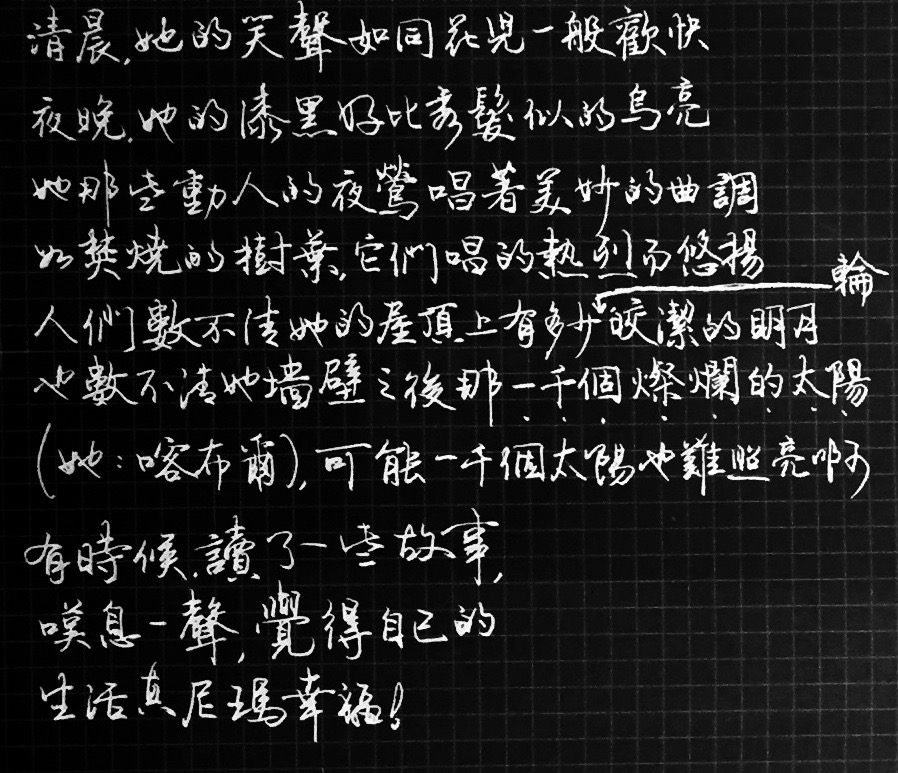 清晨,她的笑聲如同花兒一般歡快
夜晚,她的漆黑好比秀髮似的烏亮
她那些動人的夜鶯唱著美妙的曲調
如焚燒的樹葉,它們唱的熱烈而悠揚
人們數不清她的屋頂上有多少輪皎潔的明月
也數不清她墻壁之後那一千個燦爛的太陽
(她:喀布爾),可能一千個太陽也難照亮啊
有時候,讀了一些故事,
嘆息一聲,覺得自己的
生活真尼瑪幸福!